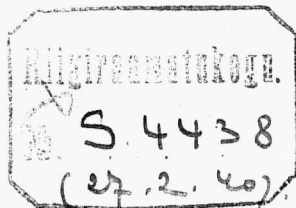 Riigiraamatukogu.
№ S. 4438
(27.2.40)